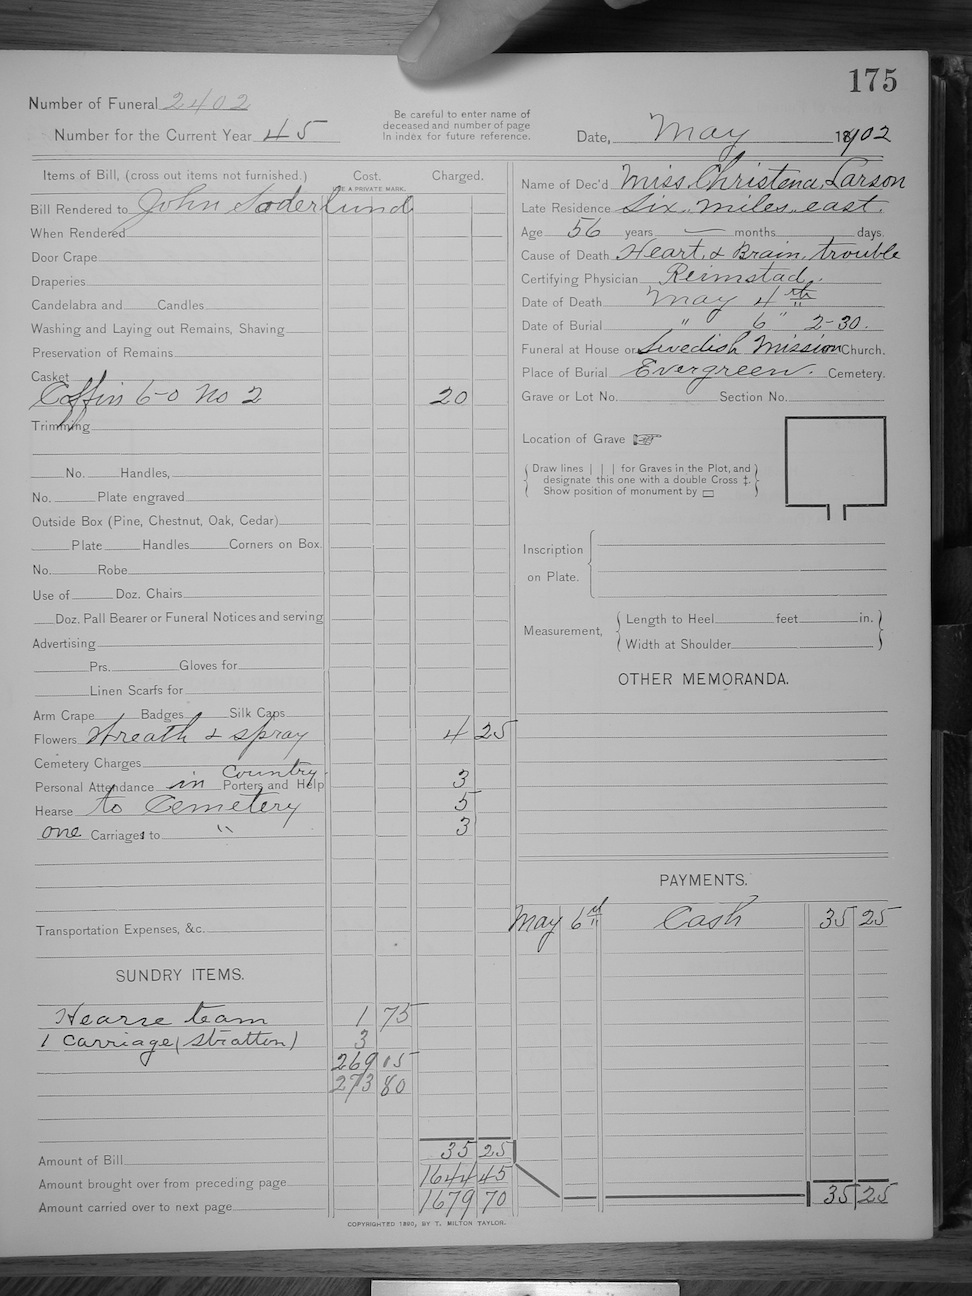 175
Number of Funeral 2402
Number for the Current Year 45
Be careful to enter name of
deceased and number of page
in index for future reference.
Date, May 1902
Items of Bill, (cross out items not furnished.) Cost. Charged.
USE A PRIVATE MARK.
Bill Rendered to John Soderlund
When Rendered
Door Crape
Draperies
Candelabra and Candles
Washing and Laying out Remains, Shaving
Preservation of Remains
Casket
Coffin 6-0 No 2 20
Trimming
No. Handles,
No. Plate engraved
Outside Box (Pine, Chestnut, Oak, Cedar)
Plate Handles Corners on Box.
No. Robe
Use of Doz. Chairs
Doz. Pall Bearer or Funeral Notices and serving
Advertising
Prs. Gloves for
Linen Scarfs for
Arm Crape Badges Silk Caps
Flowers Wreath & spray 4 25
Cemetery Charges
Personal Attendance in Country Porters and Help 3
Hearse to Cemetery 5
one Carriages to " 3
Transportation Expenses, &c.
SUNDRY ITEMS.
Hearse team 1 75
1 Carriage (Stratton) 3
269 05
273 80
Amount of Bill 35 25
Amount brought over from preceding page 1644 45
Amount carried over to next page 1679 70
Name of Dec'd Miss. Christena Larson
Late Residence Six miles east.
Age 56 years — months days.
Cause of Death Heart & Brain trouble
Certifying Physician Reimstad.
Date of Death May 4th
Date of Burial " 6" 2-30.
Funeral at House or Swedish Mission Church.
Place of Burial Evergreen. Cemetery.
Grave or Lot No. Section No.
Location of Grave ☞
Draw lines | | | for Graves in the Plot, and
designate this one with a double Cross ‡.
Show position of monument by ▭
Inscription
on Plate.
Measurement, Length to Heel feet in.
Width at Shoulder
OTHER MEMORANDA.
PAYMENTS.
May 6th Cash 35 25
35 25
COPYRIGHTED 1890, BY T. MILTON TAYLOR.